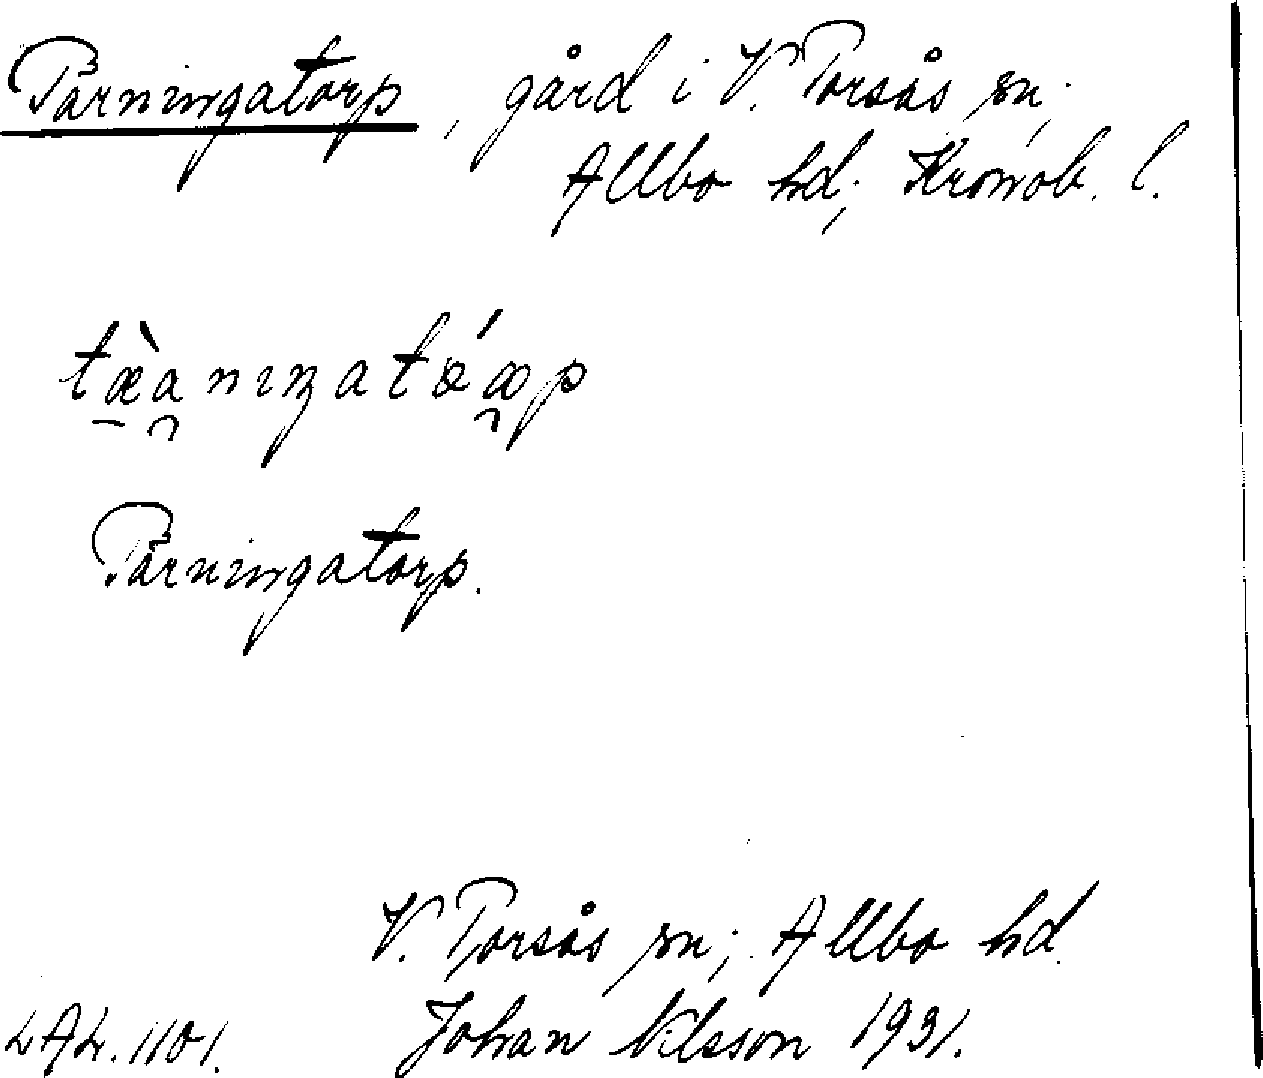 Tärningatorp, gård i V. Torsås sn;
Allbo hd; Kronob. l.
tæ̀a̯nıŋatǿa̯p
Tärningatorp.
V. Torsås sn; Allbo hd.
LAL. 1101. Johan Nilsson 1931.